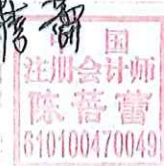 中国
注册会计师
陈蓓蕾
610100470049